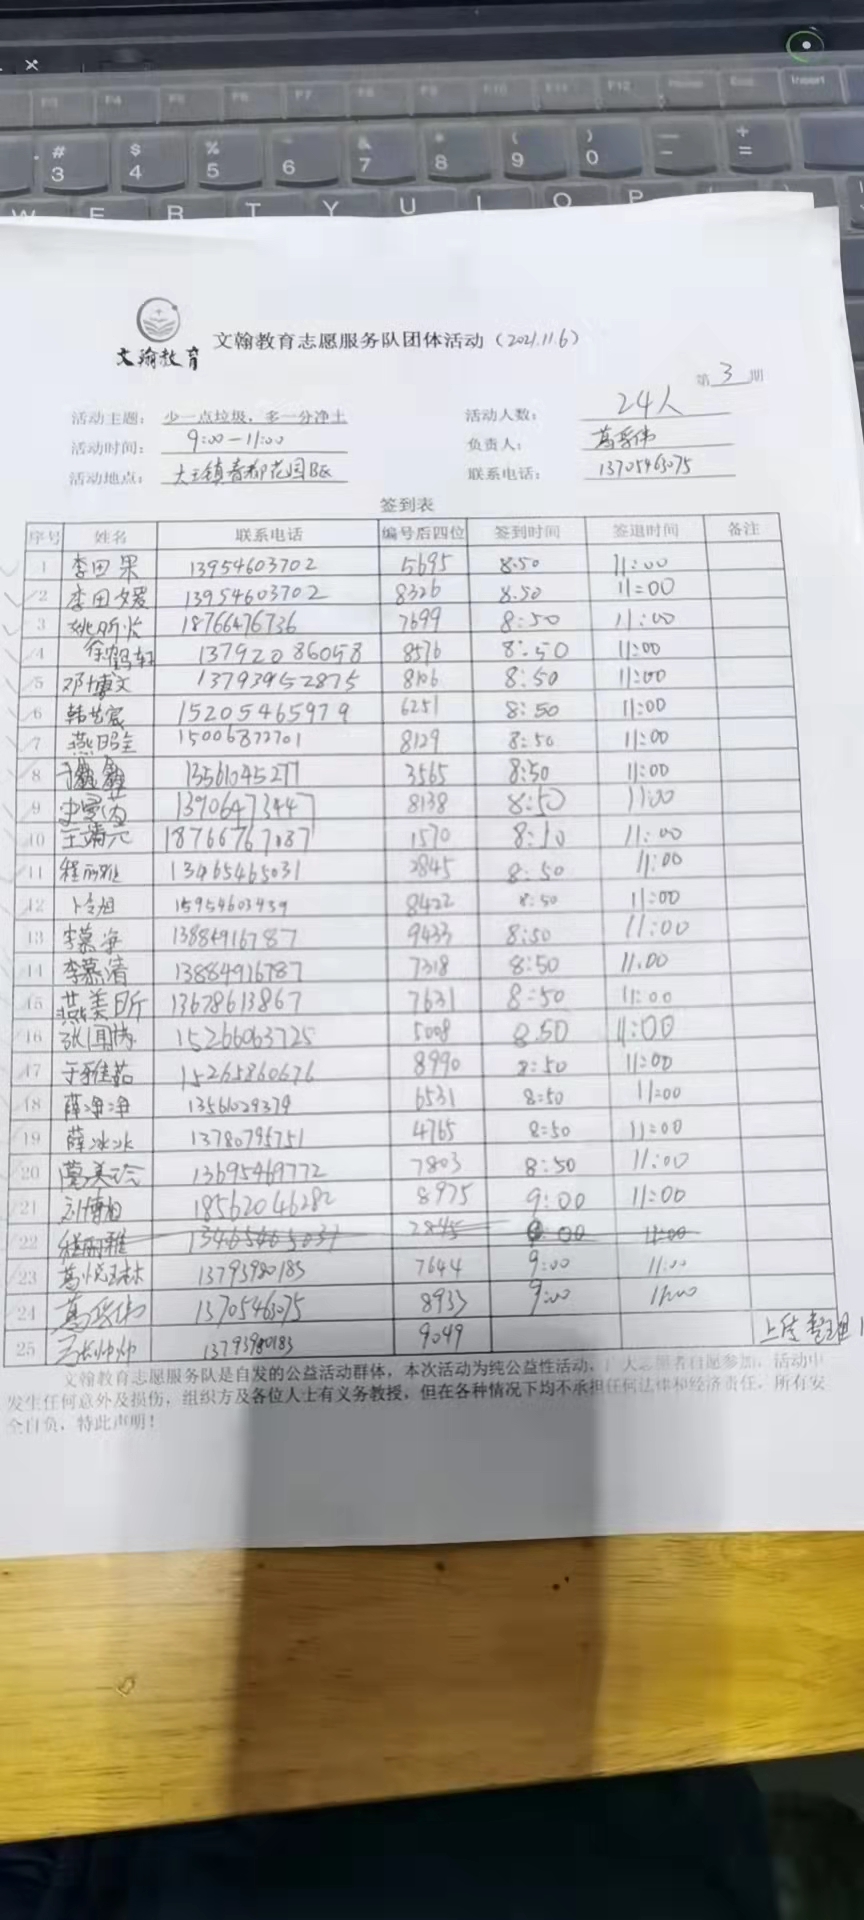 F3 F4 F5 F6 F7 F8 F9 F10 F11 F12 Home End Insert
# $ % & * ( ) — +
3 4 5 6 7 8 9 0 - =
W E R T Y U I O P
文翰教育
文翰教育志愿服务队团体活动（2021.11.6）
第 3 期
活动主题： 少一点垃圾，多一分净土 活动人数： 24人
活动时间： 9:00-11:00 负责人： 葛岳伟
活动地点： 大王镇春都花园B区 联系电话： 13705463075
签到表
序号 姓名 联系电话 编号后四位 签到时间 签退时间 备注
1 李田果 13954603702 5695 8.50 11:00
2 李田媛 13954603702 8326 8.50 11:00
3 姚昕 18766476736 7699 8:50 11:00
4 徐鹤轩 13792086058 8576 8:50 11:00
5 邓博文 13793952875 8106 8:50 11:00
6 韩艺宸 15205465979 6251 8:50 11:00
7 燕 15006877701 8129 8:50 11:00
8 13561045277 3565 8:50 11:00
9 史曼茵 13906473447 8138 8:50 11:00
10 王靖元 18766767087 1570 8:50 11:00
11 程丽雅 13465465031 2845 8:50 11:00
12 卜令旭 15954603939 8422 8:50 11:00
13 李慕海 13884916787 9433 8:50 11:00
14 李慕清 13884916787 7318 8:50 11.00
15 燕美昕 13678613867 7631 8:50 11:00
16 张 15266063725 5008 8.50 11:00
17 于雅茹 15265860676 8990 8:50 11:00
18 薛净净 13561029379 6531 8:50 11:00
19 薛冰冰 13780795751 4765 8:50 11:00
20 葛美玲 13695469772 7803 8:50 11:00
21 刘博旭 18562046282 8975 9:00 11:00
22 程丽雅 13465465031 2845 9:00 11:00
23 葛悦琳 13793980183 7644 9:00 11:00
24 葛岳伟 13705463075 8933 9:00 11:00
25 马帅帅 13793980183 9049 上传
文翰教育志愿服务队是自发的公益活动群体，本次活动为纯公益性活动，广大志愿者自愿参加，活动中
发生任何意外及损伤，组织方及各位人士有义务教授，但在各种情况下均不承担任何法律和经济责任，所有安
全自负，特此声明！